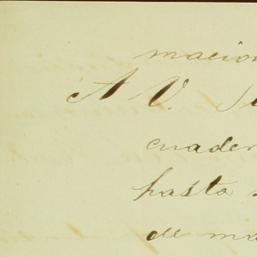 macion
A V. Su
cuader
hasta
de ma